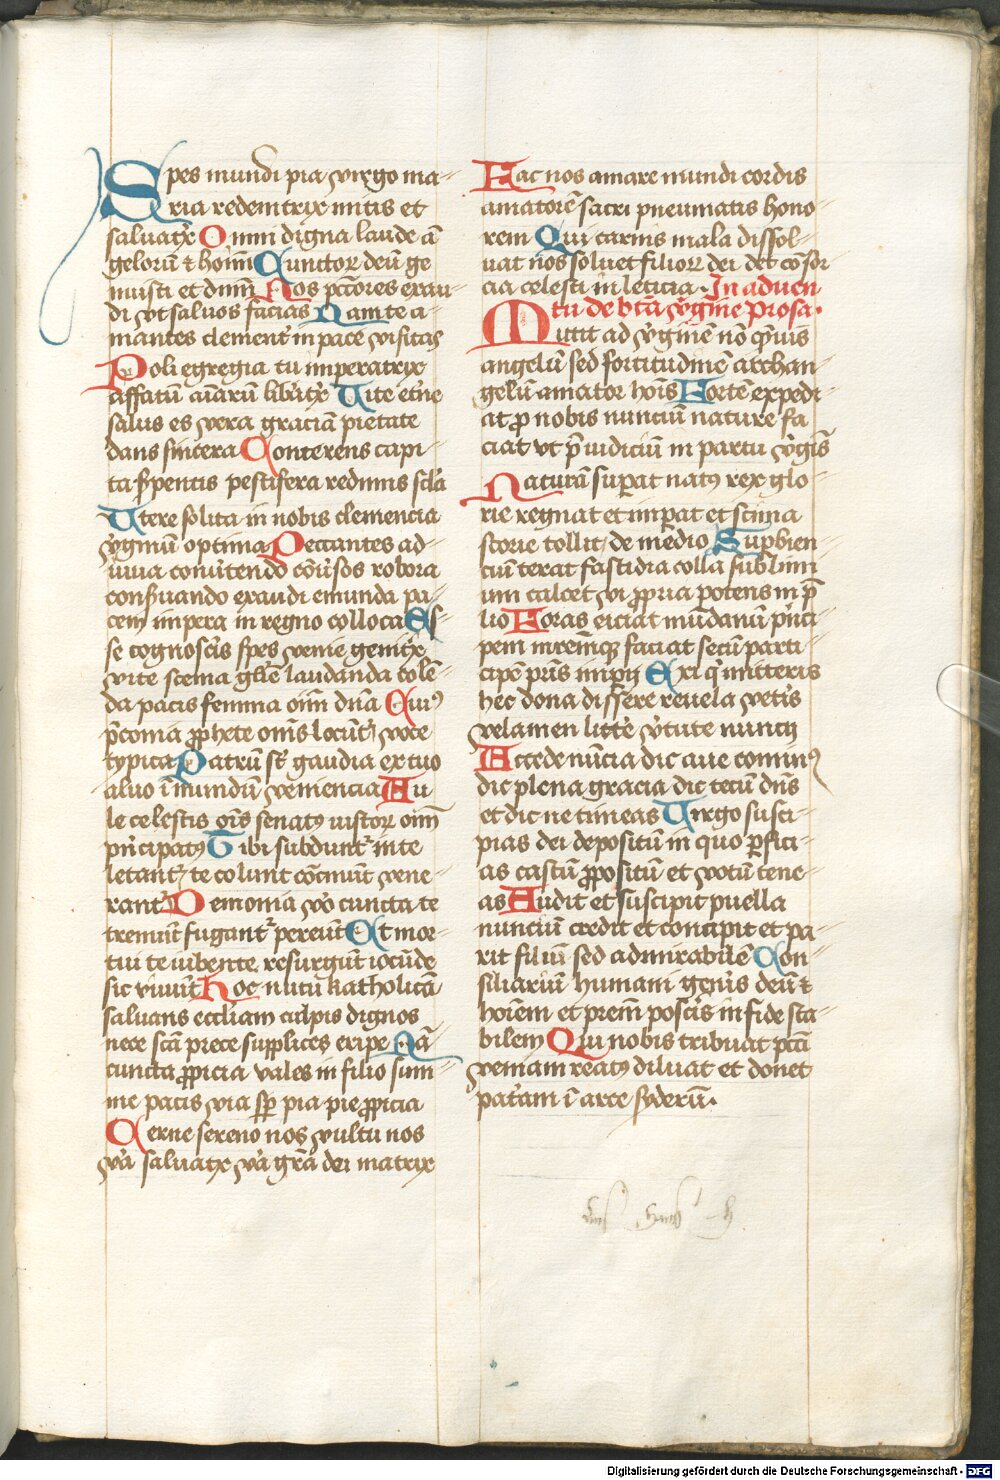 Spes mundi pia virgo ma-
ria redemtrix mitis et
saluatx Omni digna laude ā
gelorū & hoīm Cunctoꝝ deū ge
nuisti et dnm̄ Nos pctōres exau
di vt saluos facias Nam te a-
mantes clement' in pace visitas
Poli egregia tu imperatrix
affatū aīarū lib'atx Vite et'ne
salus es vera graciā pietate
dans sincera Conterens capi
ta s'pentis pestifera redimis scl'a
Vtere solita in nobis clemencia
v'ginū optima Peccantes ad-
iuua conu'tendo cōu'sos robora
consuando exaudi emunda pa-
cem impera in regno colloca Es-
se cognosc'is spes venie genitx
vite scema gl'e laudanda colē-
da pacis femina oīm dn̄a Cuiꝰ
p̄conia ꝓphete om̄s locūt' voce
typica Patrū st' gaudia ex tuo
aluo ī mundū veniencia Au
le celestis om̄s senatꝰ iustoꝝ oīm
p'ncipatꝰ Tibi subdunt' in te
letant' te colunt cōcinūt vene-
rant' Demonia v'o cuncta te
tremūt fugant' pereūt Et mor-
tui te iubente resurgūt iocūde
sic viuūt Hoc nutu katholicā
saluans eccl'iam culpis dignos
nece scā prece supplices eripe Nā
cuncta ꝓpicia vales in filio sum-
me pacis via sp̄ pia pie ꝓpicia
Cerne sereno nos vultu nos
v'a saluatx v'a grā dei matrix
Fac nos amare mundi cordis
amatorē sacri pneumatis hono
rem Qui carnis mala dissol-
uat nos soluet filioꝝ dei det cōsor
cia celesti in leticia. In aduen
tu de btā v'gine Prosa.
Mittit ad v'ginē nō q'muis
angelū sed fortitudinē archan
gelū amator hoīs Fortē expedi
at ꝓ nobis nunciū nature fa
ciat vt p̄iudiciū in partu v'gīs
Naturā supat natꝰ rex glo-
rie regnat et impat et scima
scorie tollit de medio Supbien
ciū terat fastidia colla sublimi
um calcet vi ꝓpria potens in p̄
lio Foras eiciat mūdanū p'nci
pem mrēmq̄ faciat secū parti
cipē pr̄is impij Exi q' mitteris
hec dona dissere reuela vet'is
velamen litt'e v'tute nuncij
Accede nūcia dic aue cominꝰ
dic plena gracia dic tecū dn̄s
et dic ne timeas Virgo susci-
pias dei depositū in quo p̱fici-
as castū ꝓpositū et votū tene-
as Audit et suscipit puella
nunciū credit et concipit et pa-
rit filiū sed admirabilē Con-
siliariū humani gen'is deū &
hoīem et prem̄ posc'is in fide sta-
bilem Qui nobis tribuat pctī
veniam reatꝰ diluat et donet
pat'am ī arce syderū.
Digitalisierung gefördert durch die Deutsche Forschungsgemeinschaft - DFG